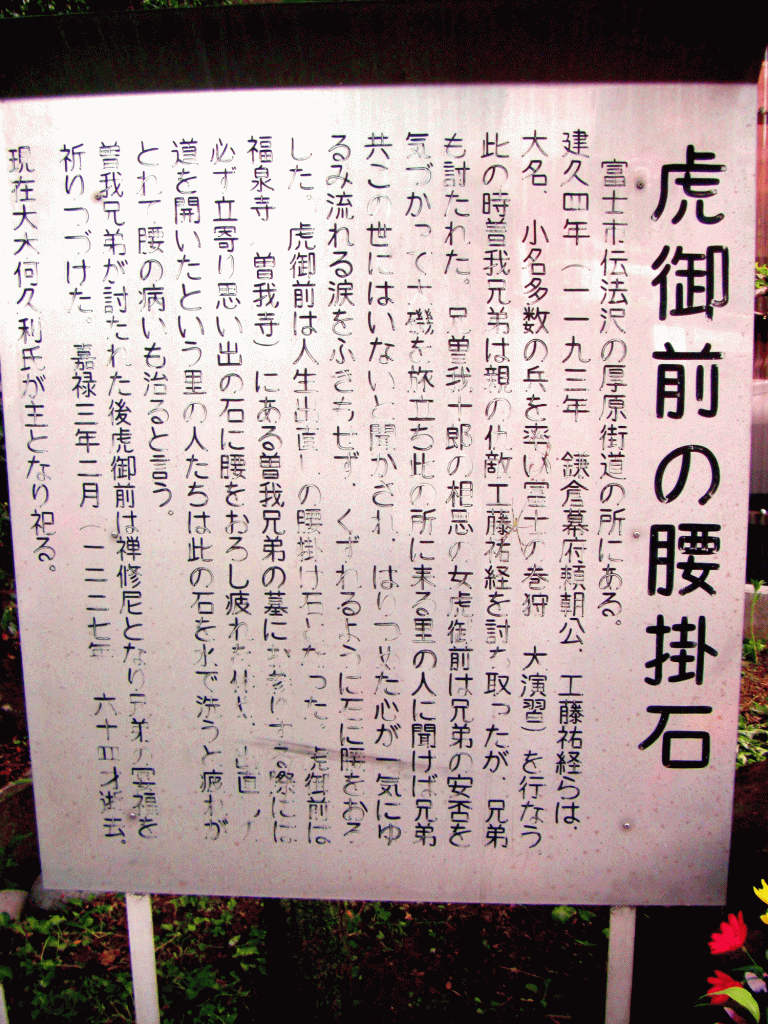 虎御前の腰掛石
富士市伝法沢の厚原街道の所にある。
建久四年(一一九三年 鎌倉幕府頼朝公、工藤祐経らは、
大名、小名多数の兵を率い富士の巻狩 大演習)を行なう
此の時曽我兄弟は親の仇敵工藤祐経を討ち取ったが、兄弟
も討たれた。兄曽我十郎の相思の女虎御前は兄弟の安否を
気づかって大磯を旅立ち此の所に来る里の人に聞けば兄弟
共この世にはいないと聞かされ、はりつめた心が一気にゆ
るみ流れる涙をふきもせず、くずれるように石に腰をおろ
した。虎御前は人生出直しの腰掛け石となった。虎御前は
福泉寺 曽我寺)にある曽我兄弟の墓にお参りする際には
必ず立寄り思い出の石に腰をおろし疲れを休め 出直し
道を開いたという里の人たちは此の石を水で洗うと疲れが
とれて腰の病いも治ると言う。
曽我兄弟が討たれた後虎御前は禅修尼となり兄弟の冥福を
祈りつづけた。嘉禄三年二月(一二二七年 六十四才逝去。
現在大木何久利氏が主となり祀る。